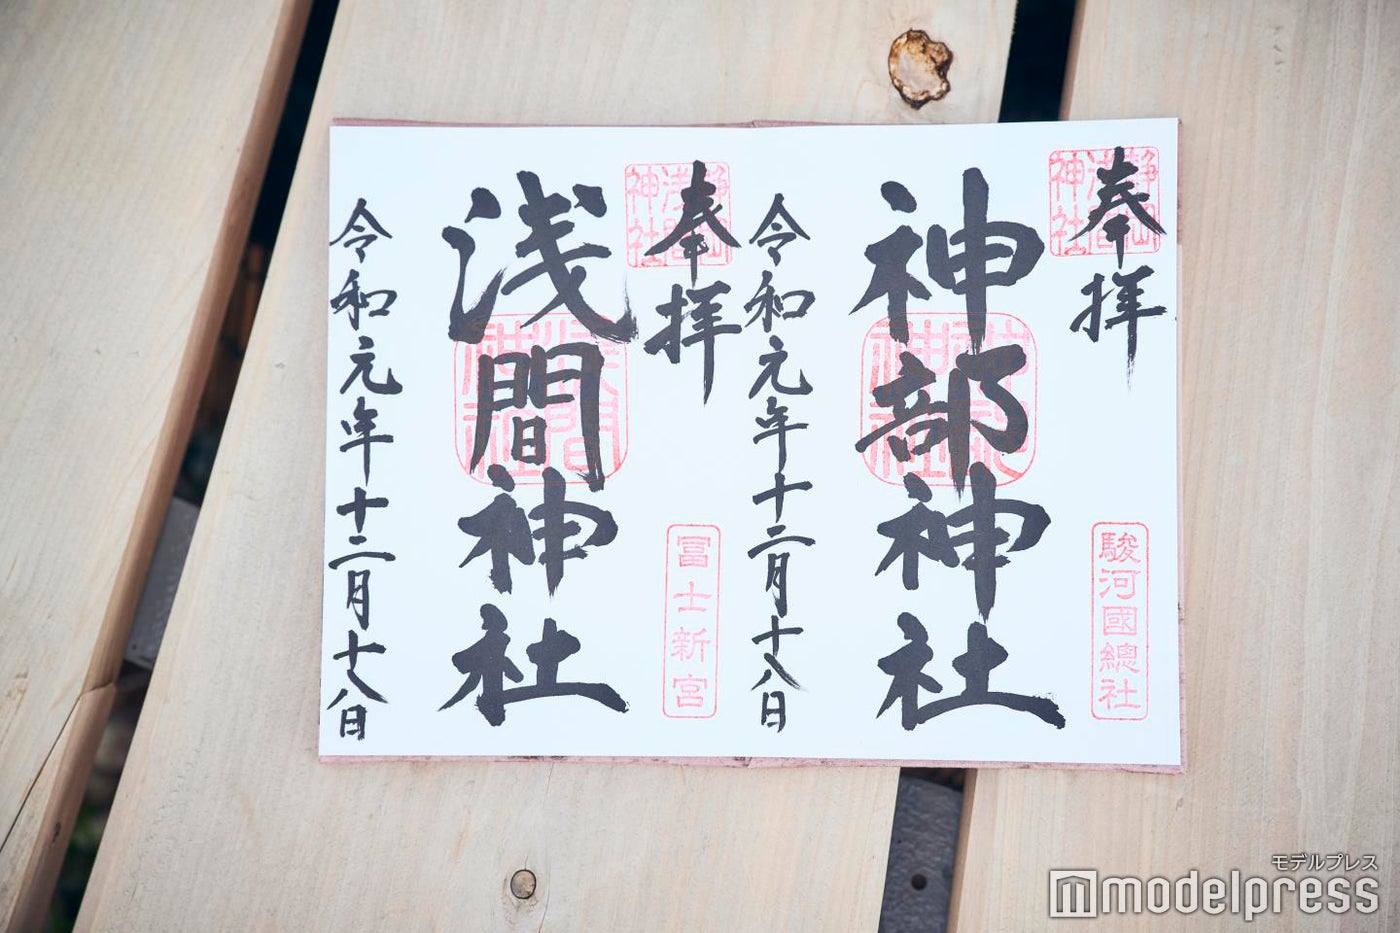 奉拝
静岡浅間神社
神部神社
神部神社
駿河國總社
令和元年十二月十八日
奉拝
静岡浅間神社
浅間神社
浅間神社
冨士新宮
令和元年十二月十八日
モデルプレス
modelpress